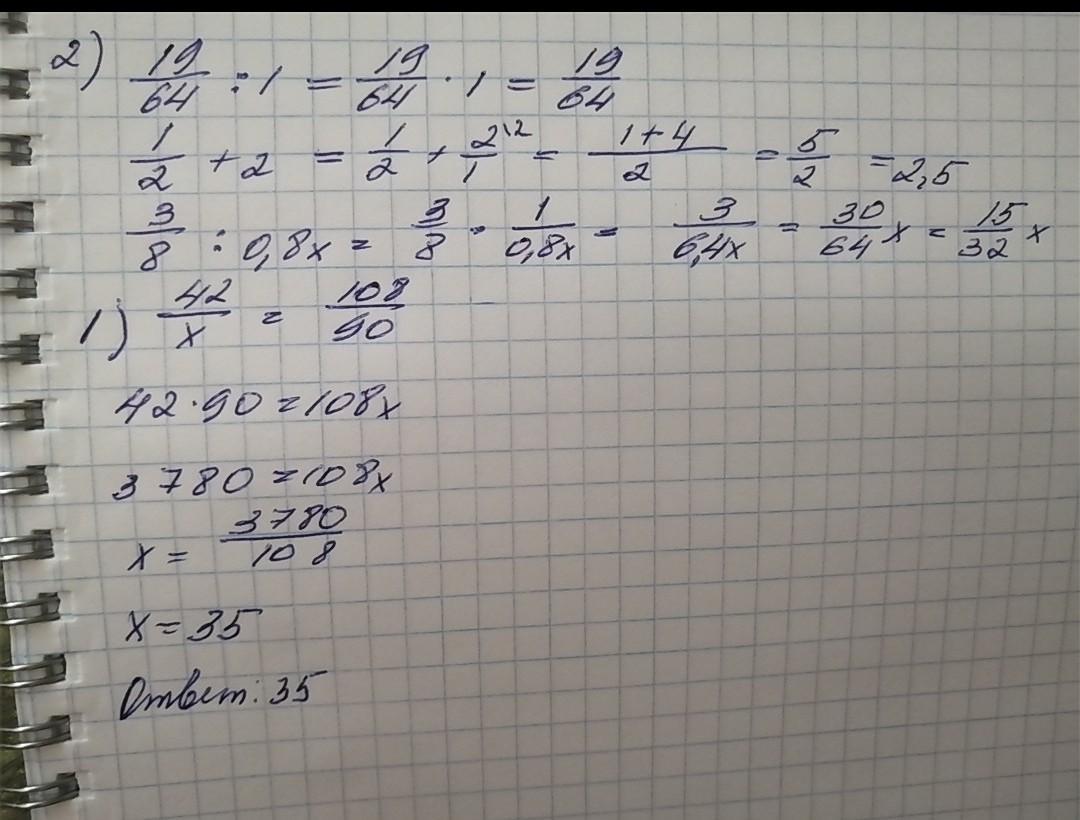 2) 19/64 : 1 = 19/64 · 1 = 19/64
1/2 + 2 = 1/2 + 2\2/1 = 1+4/2 = 5/2 = 2,5
3/8 : 0,8x = 3/8 · 1/0,8x = 3/6,4x = 30/64 x = 15/32 x
1) 42/x = 108/90
42·90=108x
3780=108x
x = 3780/108
x=35
Ответ: 35